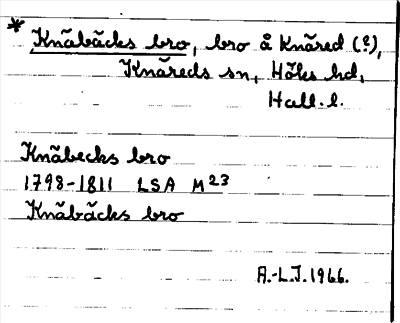 * Knäbäcks bro, bro å Knäred (?),
Knäreds sn, Höks hd,
Hall. l.
Knäbecks bro
1798-1811 LSA M23
Knäbäcks bro
A.-L.J. 1966.